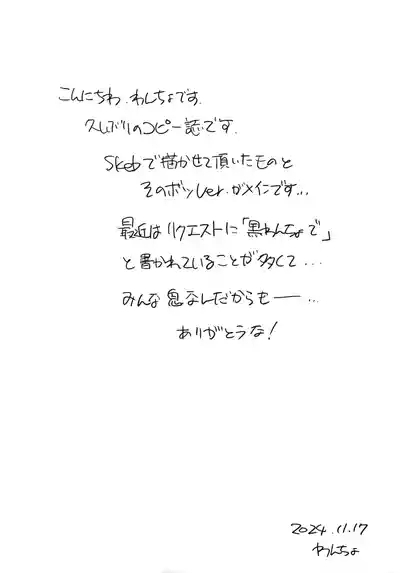 こんにちわ、わんちょです。
久しぶりのコピー誌です。
Skebで描かせて頂いたものと
そのボツver.がメインです…
最近はリクエストに「黒わんちょで」
と書かれていることが多くて…
みんな息なんだからも――…
ありがとうな!
2024.11.17
わんちょ